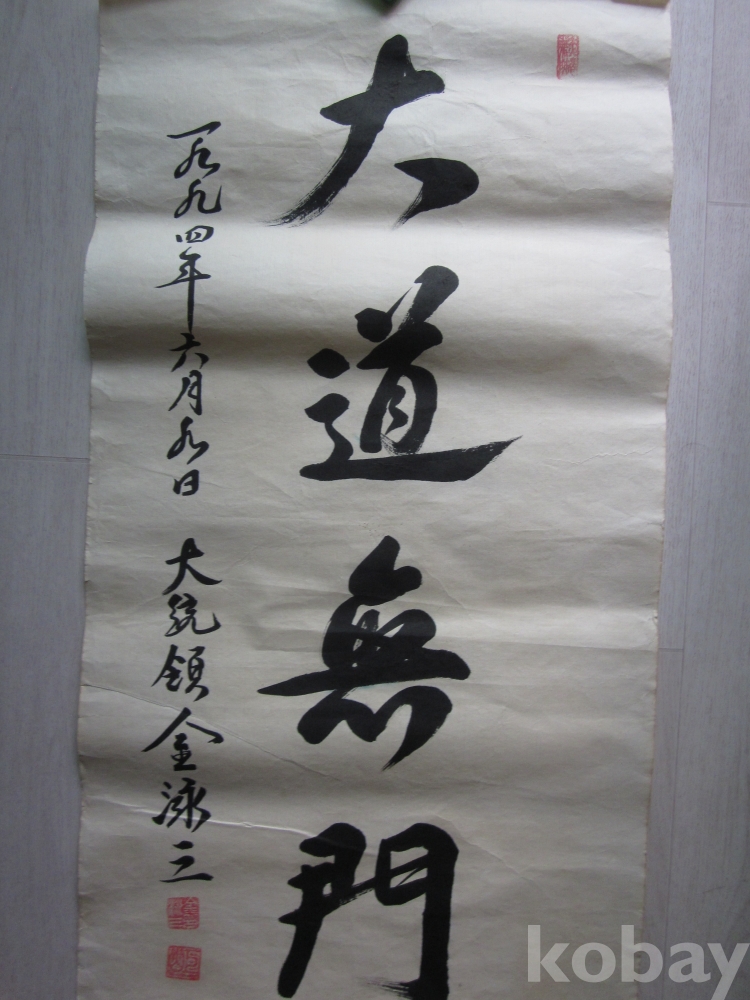 大道無門
一九九四年六月九日 大統領 金泳三
kobay